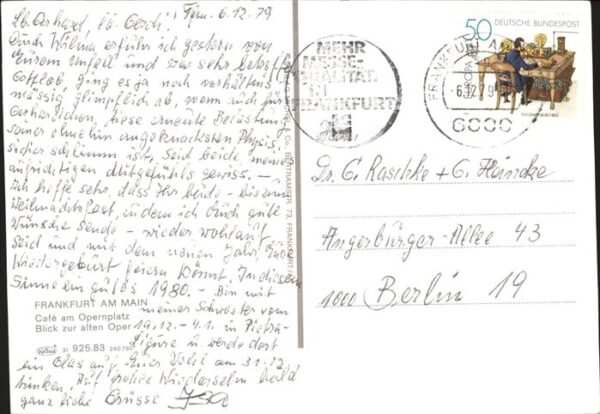 Lb. Gerhard, lb. Gerdi! Ffm. 6.12.79
Durch Wilma erfuhr ich gestern von
Eurem Unfall und war sehr betroffen.
Gottlob ging es ja noch verhältnis-
mässig glimpflich ab, wenn auch für
Gerhardchen, diese erneute Belastung
seiner ohnehin angeknacksten Physis,
sicher schlimm ist. Seid beide meines
aufrichtigen Mitgefühls gewiss. –
Ich hoffe sehr, dass Ihr beide – bis zum
Weihnachtsfest, zu dem ich Euch gute
Wünsche sende – wieder wohlauf
seid und mit dem neuen Jahr, Eure
Wiedergeburt feiern könnt. In diesem
Sinne ein gutes 1980. – Bin mit
meiner Schwester vom
19.12. – 4.1. in Pietra-
ligure u. werde dort
ein Glas auf Euer Wohl am 31.12.
trinken. Auf frohes Wiedersehn bald
ganz liebe Grüsse Isa
FRANKFURT AM MAIN
Café am Opernplatz
Blick zur alten Oper
31 925.83 240790
& CO., BERTRAMSTR. 73, FRANKFURT/M
MEHR
MESSE-
QUALITÄT
IN
FRANKFURT
FRANKFURT A
-6.12.79
6000
50 DEUTSCHE BUNDESPOST
Dr. G. Raschke + G. Heincke
Angerburger-Allee 43
1000 Berlin 19